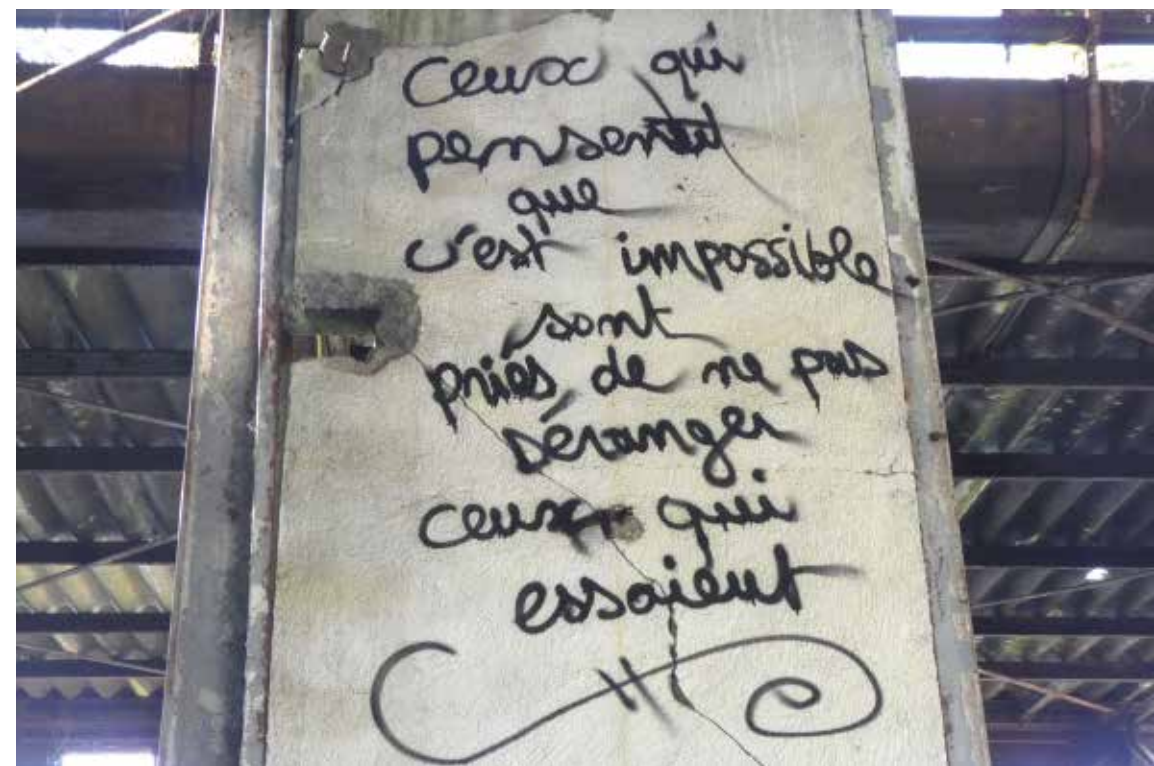 Ceux qui
pensent
que
c'est impossible
sont
priés de ne pas
déranger
ceux qui
essaient